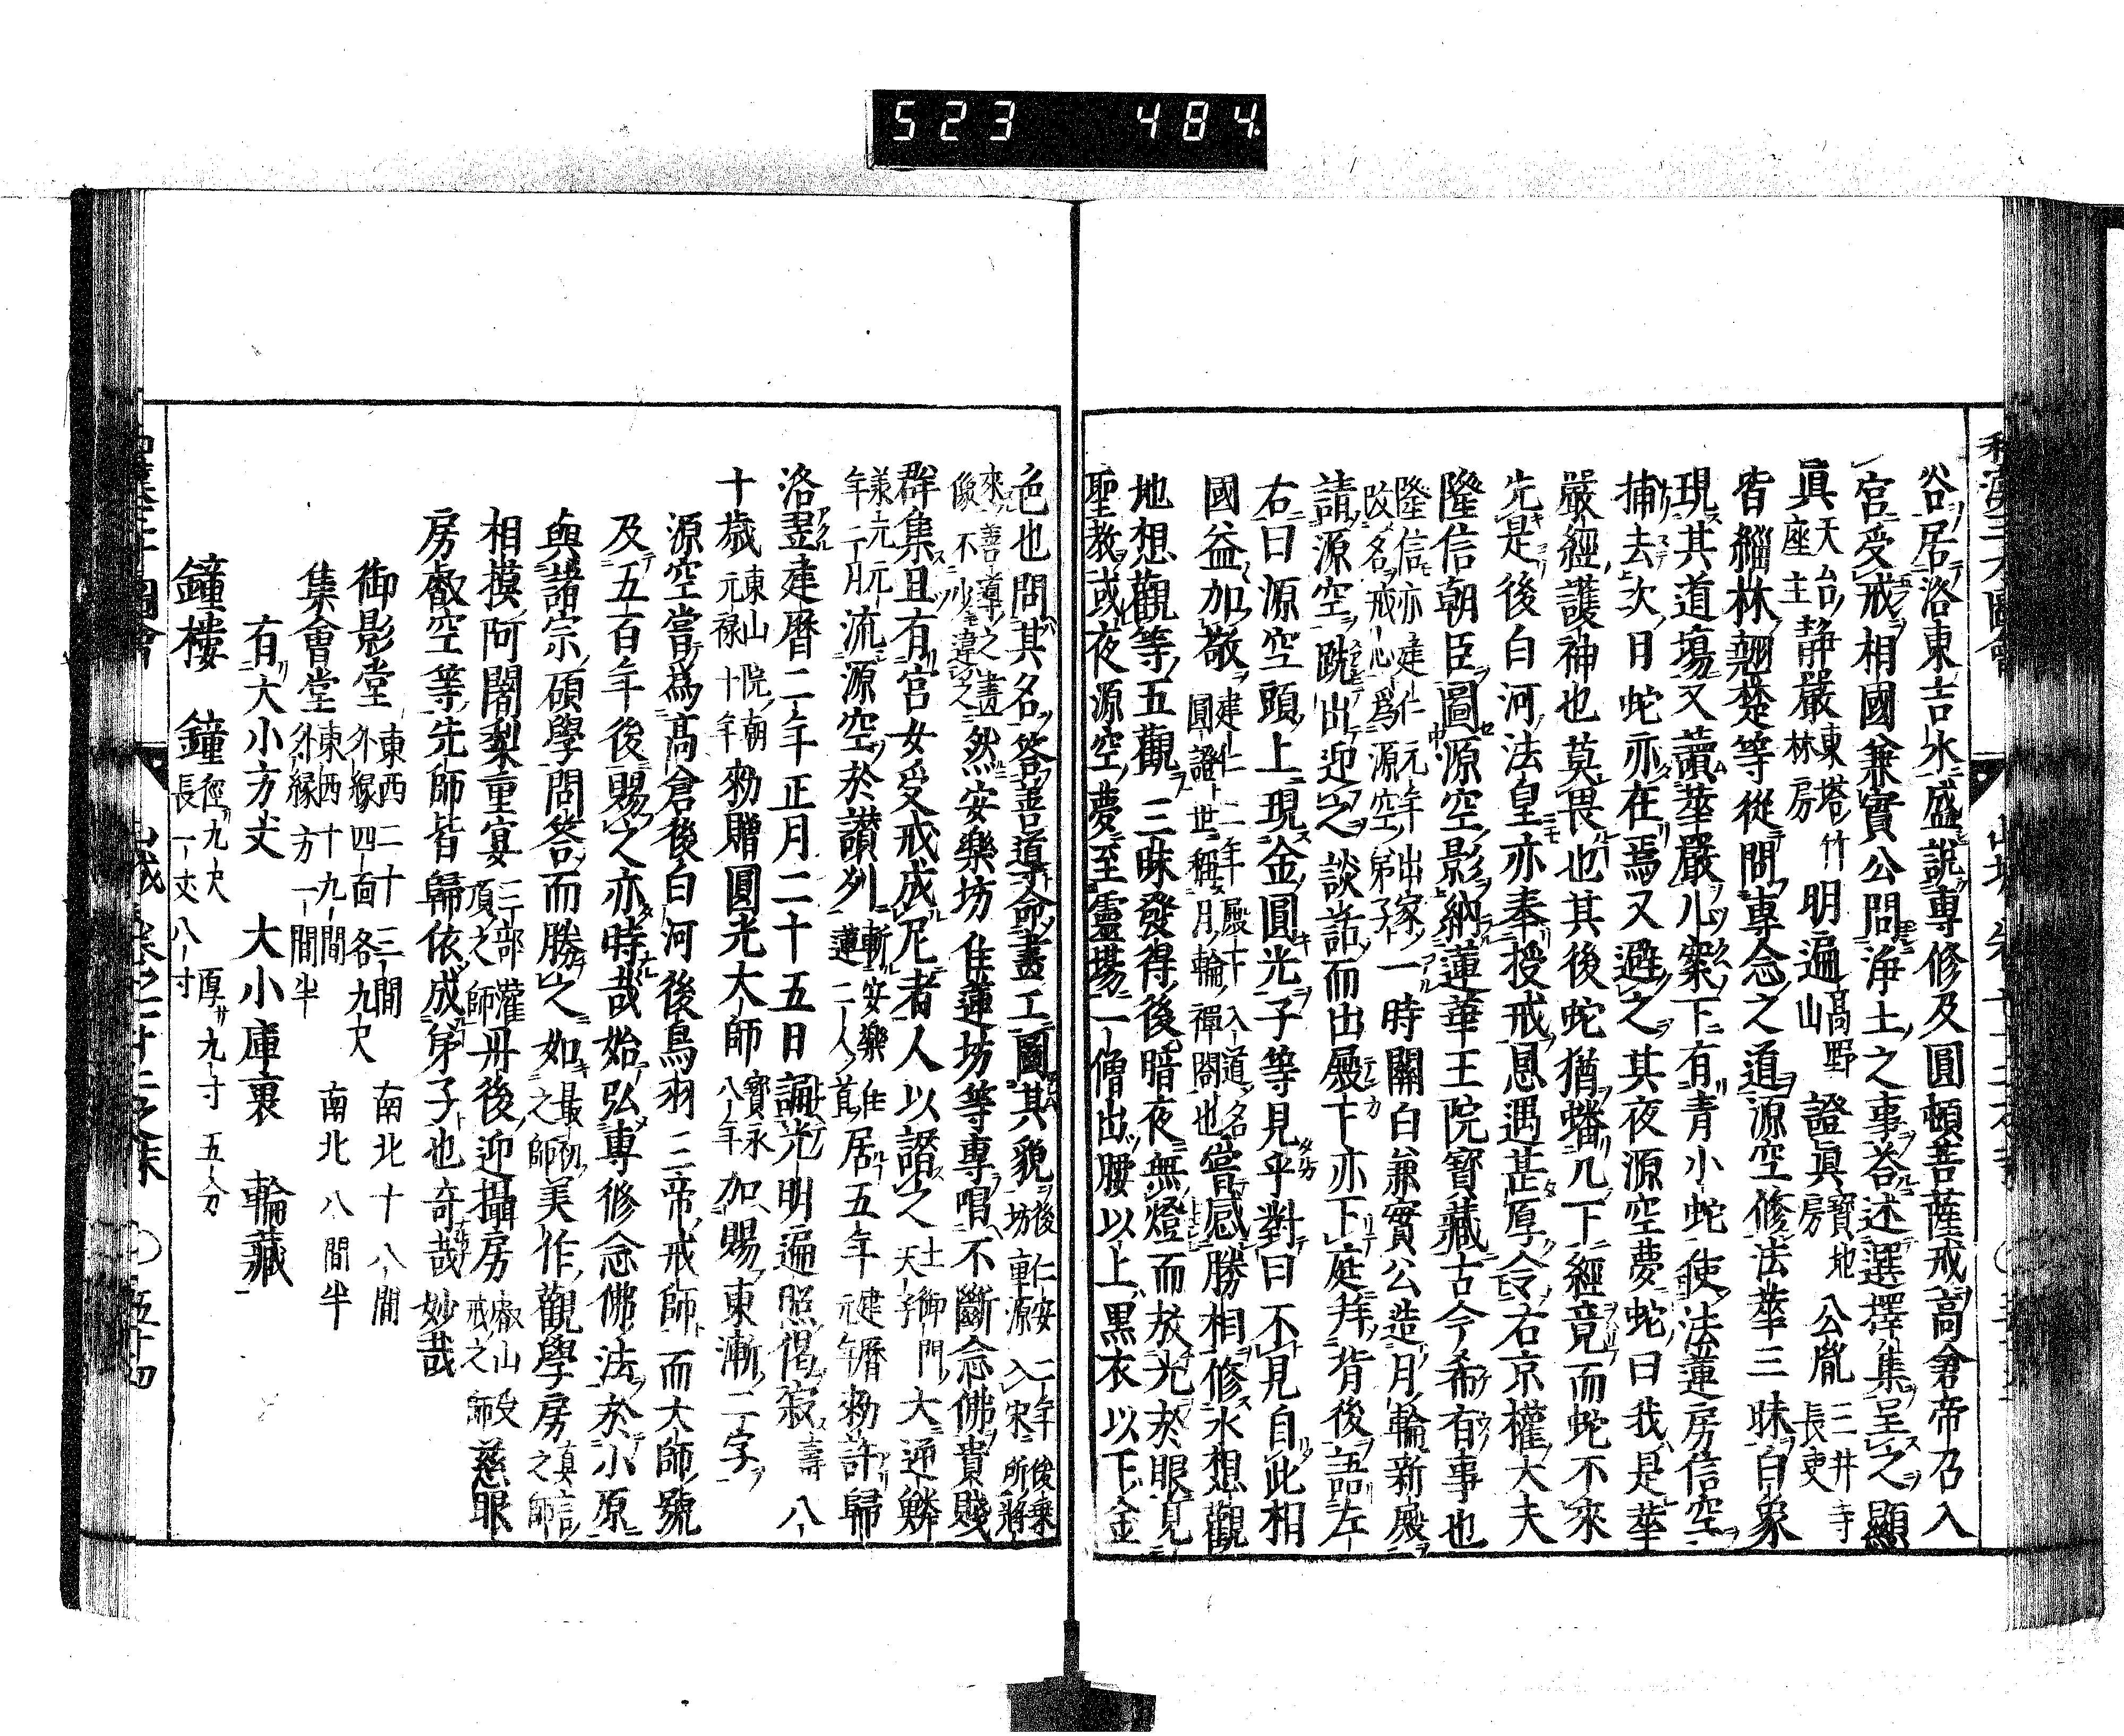 523 484
谷居洛東吉水盛說專修及圓頓菩薩戒高倉帝乃入
宮受戒相國兼實公問淨土之事荅述選擇集呈之顯
眞天台座主靜嚴東塔竹林房明遍高野山證眞寶地房公胤三井寺長吏
皆緇林翹楚等從問專念之道源空修法華三昧白象
現其道塲又讀華嚴凢案下有青小蛇使法蓮房信空
捕去次日蛇亦在焉又避之其夜源空夢蛇曰我是華
嚴經護神也莫畏也其後蛇猶蟠几下經竟而蛇不來
先是後白河法皇亦奉授戒恩遇甚厚令右京權大夫
隆信朝臣圖源空影納蓮華王院寶藏古今希有事也
隆信亦建仁元年出家改名戒心爲源空弟子一時關白兼實公造月輪新殿
請源空跣出迎之談話而出殿下亦下庭拜背後語左
右曰源空頭上現金圓光子等見乎對曰不見自此相
國益加敬建仁二年殿下入道名圓證世稱月輪禪閤也嘗感勝相修水想觀
地想觀等五觀三昧發得後暗夜無燈而放光於眼見
聖教或夜源空夢至靈塲一僧出腰以上黑衣以下金
色也問其名答善導命畫工圖其貌後仁安二年後乗坊重源入宋所將
來善導之畫像不少違之然安樂坊住蓮坊等專唱不斷念佛貴賤
群集且有官女受戒成尼者人以譖之土御門天子大逆鱗
承元元年二月流源空於讃列斬安樂住蓮二人首居五年建曆元年勑許歸
洛翌建曆二年正月二十五日誦光明遍照偈寂壽八
十歲東山院朝元禄十年勑贈圓光大師寶永八年加賜東漸二字
源空嘗爲高倉後白河後鳥羽三帝戒師而大師號
及五百年後賜之亦時哉始弘專修念佛法於小原
與諸宗碩學問答而勝之如最初之師美作觀學房眞言之師
相摸阿闍梨重宴三部灌頂之師丹後迎攝房叡山受戒之師慈眼
房叡空等先師皆歸依成弟子也奇哉妙哉
御影堂東西二十三間外緣四面各九尺南北十八間
集會堂東西十九間外緣方一間半南北八間半
有大小方丈 大小庫裏 輪藏
鐘樓 鐘徑九尺長一丈八寸厚サ九寸五分